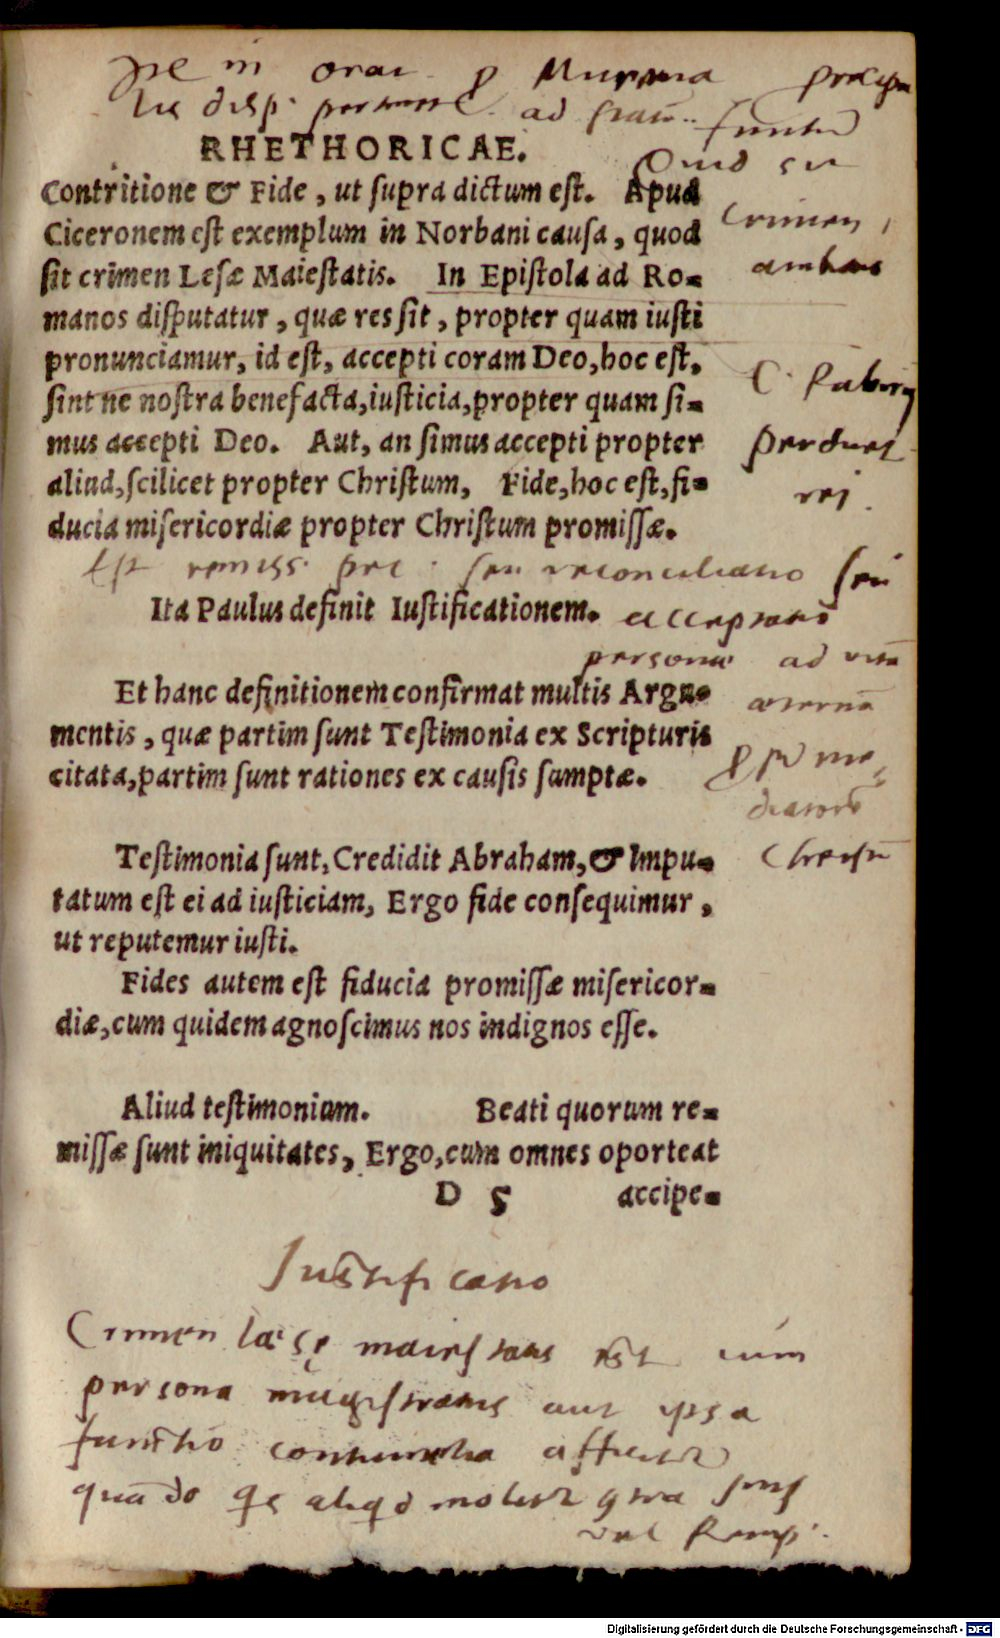 in orat. p Murena
ad
RHETHORICAE.
Quid sit
Contritione & Fide, ut supra dictum est. Apud
crimen
Ciceronem est exemplum in Norbani causa, quod
ambitus
sit crimen Lesæ Maiestatis. In Epistola ad Ro-
manos disputatur, quæ res sit, propter quam iusti
pronunciamur, id est, accepti coram Deo, hoc est,
C. Rabirij
sint ne nostra benefacta, iusticia, propter quam si-
mus accepti Deo. Aut, an simus accepti propter
perduel
aliud, scilicet propter Christum, Fide, hoc est, fi-
rei.
ducia misericordiæ propter Christum promissæ.
Est remiss. pec. seu reconciliatio seu
Ita Paulus definit Iustificationem.
acceptatio
personæ ad vitā
Et hanc definitionem confirmat multis Argu-
æternā
mentis, quæ partim sunt Testimonia ex Scripturis
citata, partim sunt rationes ex causis sumptæ.
Testimonia sunt, Credidit Abraham, & Impu-
Christū
tatum est ei ad iusticiam, Ergo fide consequimur,
ut reputemur iusti.
Fides autem est fiducia promissæ misericor-
diæ, cum quidem agnoscimus nos indignos esse.
Aliud testimonium. Beati quorum re-
missæ sunt iniquitates, Ergo, cum omnes oporteat
D 5 accipe-
Iustificatio
Crimen læsę maiestatis est cum
persona magistratus aut ipsa
functio contumelia afficitur
quādo qs aliqd molitur
vel Remp.